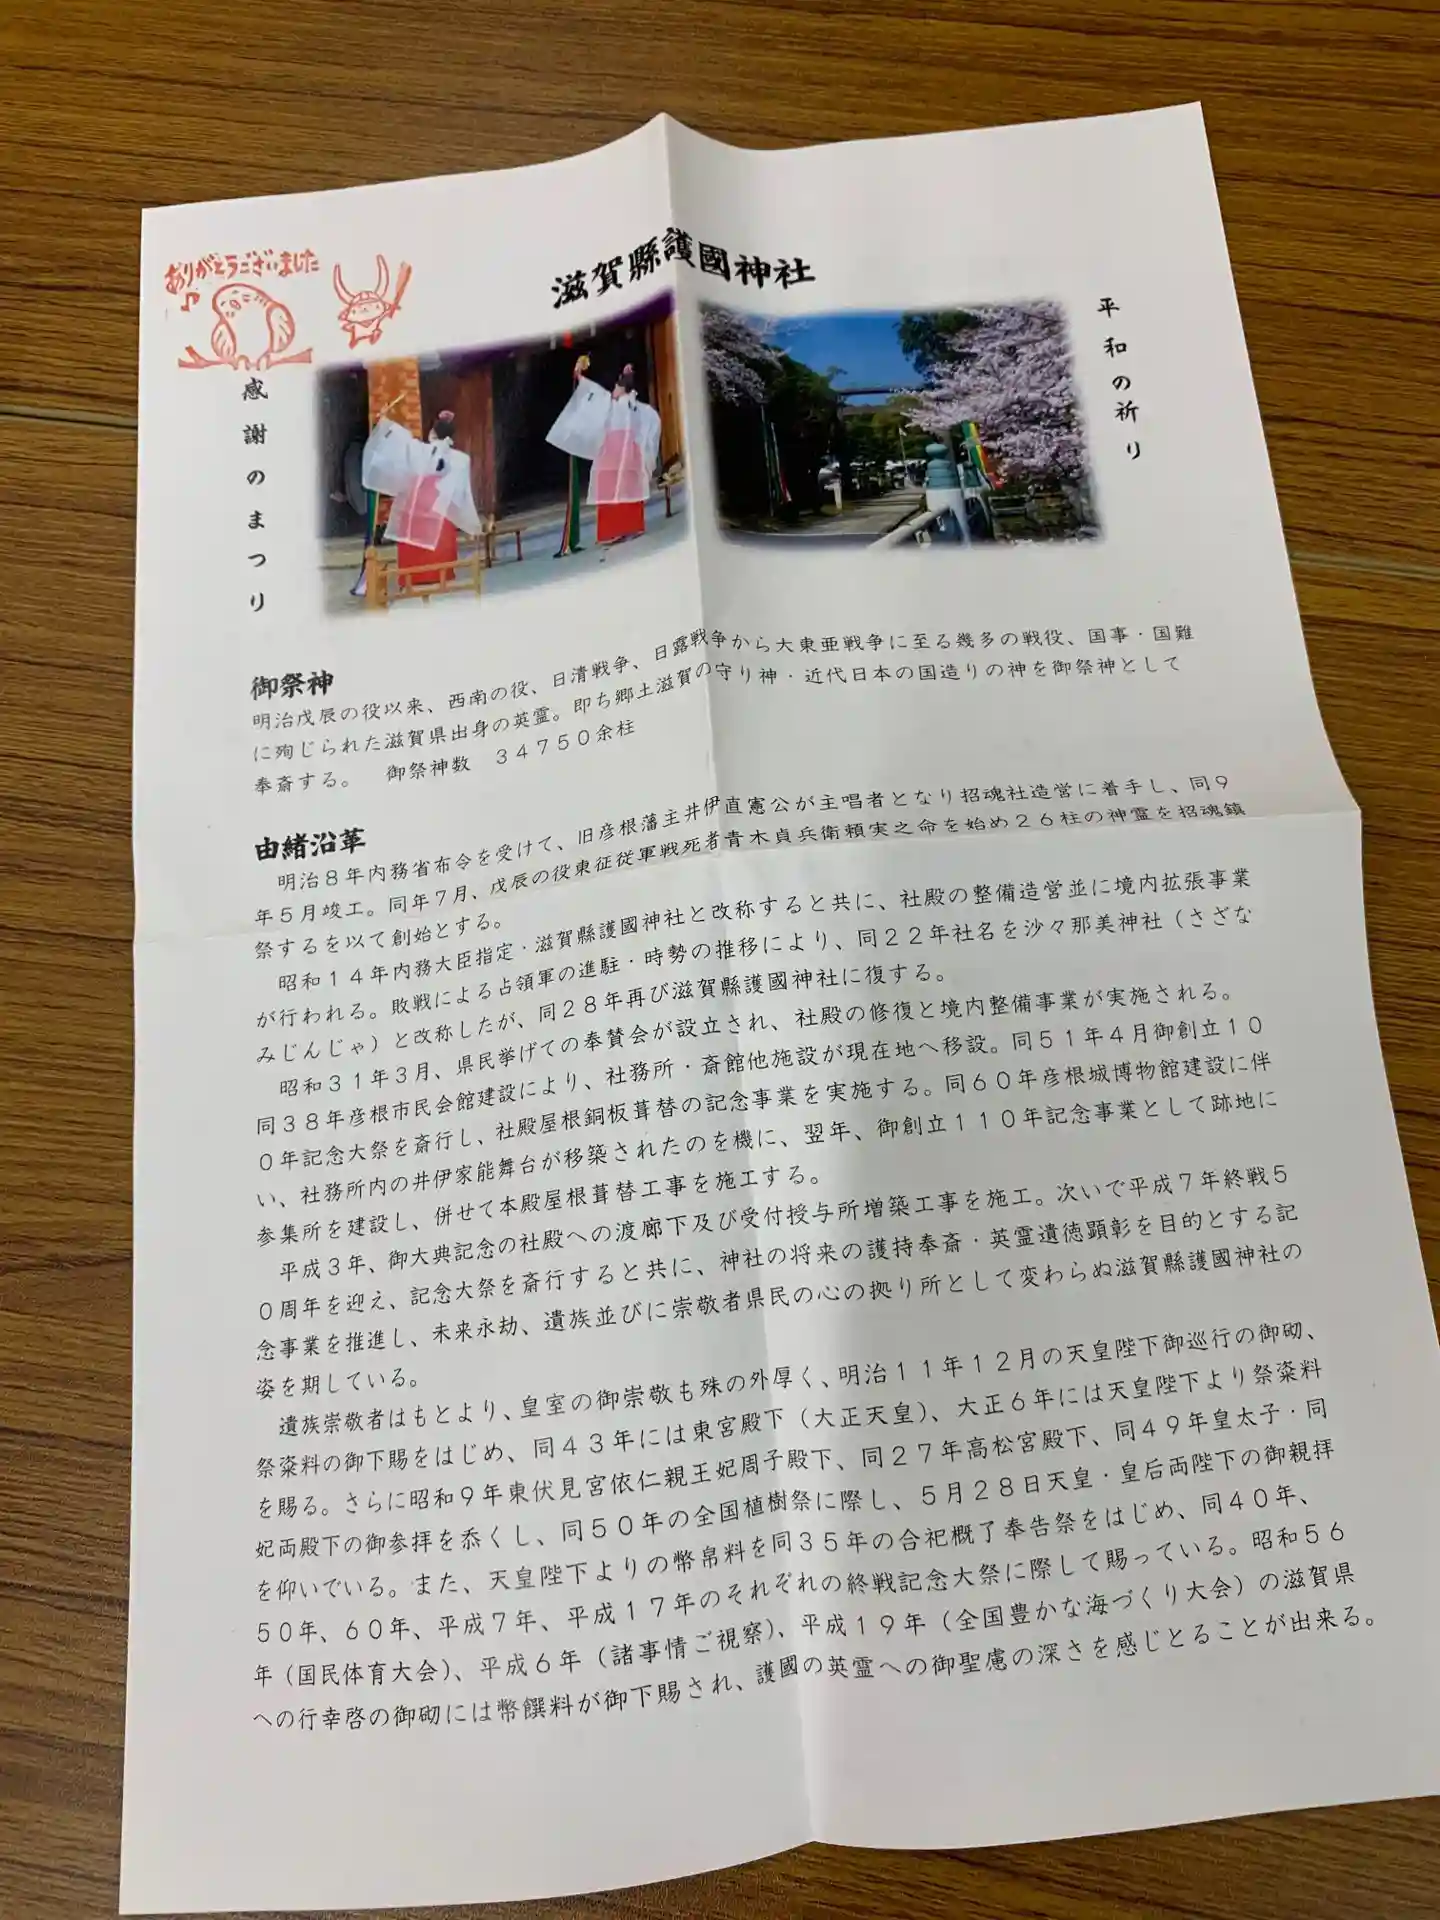 ありがとうございました
滋賀縣護國神社
感謝のまつり
平和の祈り
御祭神
明治戊辰の役以来、西南の役、日清戦争、日露戦争から大東亜戦争に至る幾多の戦役、国事・国難
に殉じられた滋賀県出身の英霊。即ち郷土滋賀の守り神・近代日本の国造りの神を御祭神として
奉斎する。　御祭神数　３４７５０余柱
由緒沿革
明治８年内務省布令を受けて、旧彦根藩主井伊直憲公が主唱者となり招魂社造営に着手し、同９
年５月竣工。同年７月、戊辰の役東征従軍戦死者青木貞兵衛頼実之命を始め２６柱の神霊を招魂鎮
祭するを以て創始とする。
昭和１４年内務大臣指定・滋賀縣護國神社と改称すると共に、社殿の整備造営並に境内拡張事業
が行われる。敗戦による占領軍の進駐・時勢の推移により、同２２年社名を沙々那美神社（さざな
みじんじゃ）と改称したが、同２８年再び滋賀縣護國神社に復する。
昭和３１年３月、県民挙げての奉賛会が設立され、社殿の修復と境内整備事業が実施される。
同３８年彦根市民会館建設により、社務所・斎館他施設が現在地へ移設。同５１年４月御創立１０
０年記念大祭を斎行し、社殿屋根銅板葺替の記念事業を実施する。同６０年彦根城博物館建設に伴
い、社務所内の井伊家能舞台が移築されたのを機に、翌年、御創立１１０年記念事業として跡地に
参集所を建設し、併せて本殿屋根葺替工事を施工する。
平成３年、御大典記念の社殿への渡廊下及び受付授与所増築工事を施工。次いで平成７年終戦５
０周年を迎え、記念大祭を斎行すると共に、神社の将来の護持奉斎・英霊遺徳顕彰を目的とする記
念事業を推進し、未来永劫、遺族並びに崇敬者県民の心の拠り所として変わらぬ滋賀縣護國神社の
姿を期している。
遺族崇敬者はもとより、皇室の御崇敬も殊の外厚く、明治１１年１２月の天皇陛下御巡行の御砌、
祭粢料の御下賜をはじめ、同４３年には東宮殿下（大正天皇）、大正６年には天皇陛下より祭粢料
を賜る。さらに昭和９年東伏見宮依仁親王妃周子殿下、同２７年高松宮殿下、同４９年皇太子・同
妃両殿下の御参拝を忝くし、同５０年の全国植樹祭に際し、５月２８日天皇・皇后両陛下の御親拝
を仰いでいる。また、天皇陛下よりの幣帛料を同３５年の合祀概了奉告祭をはじめ、同４０年、
５０年、６０年、平成７年、平成１７年のそれぞれの終戦記念大祭に際して賜っている。昭和５６
年（国民体育大会）、平成６年（諸事情ご視察）、平成１９年（全国豊かな海づくり大会）の滋賀県
への行幸啓の御砌には幣饌料が御下賜され、護國の英霊への御聖慮の深さを感じとることが出来る。